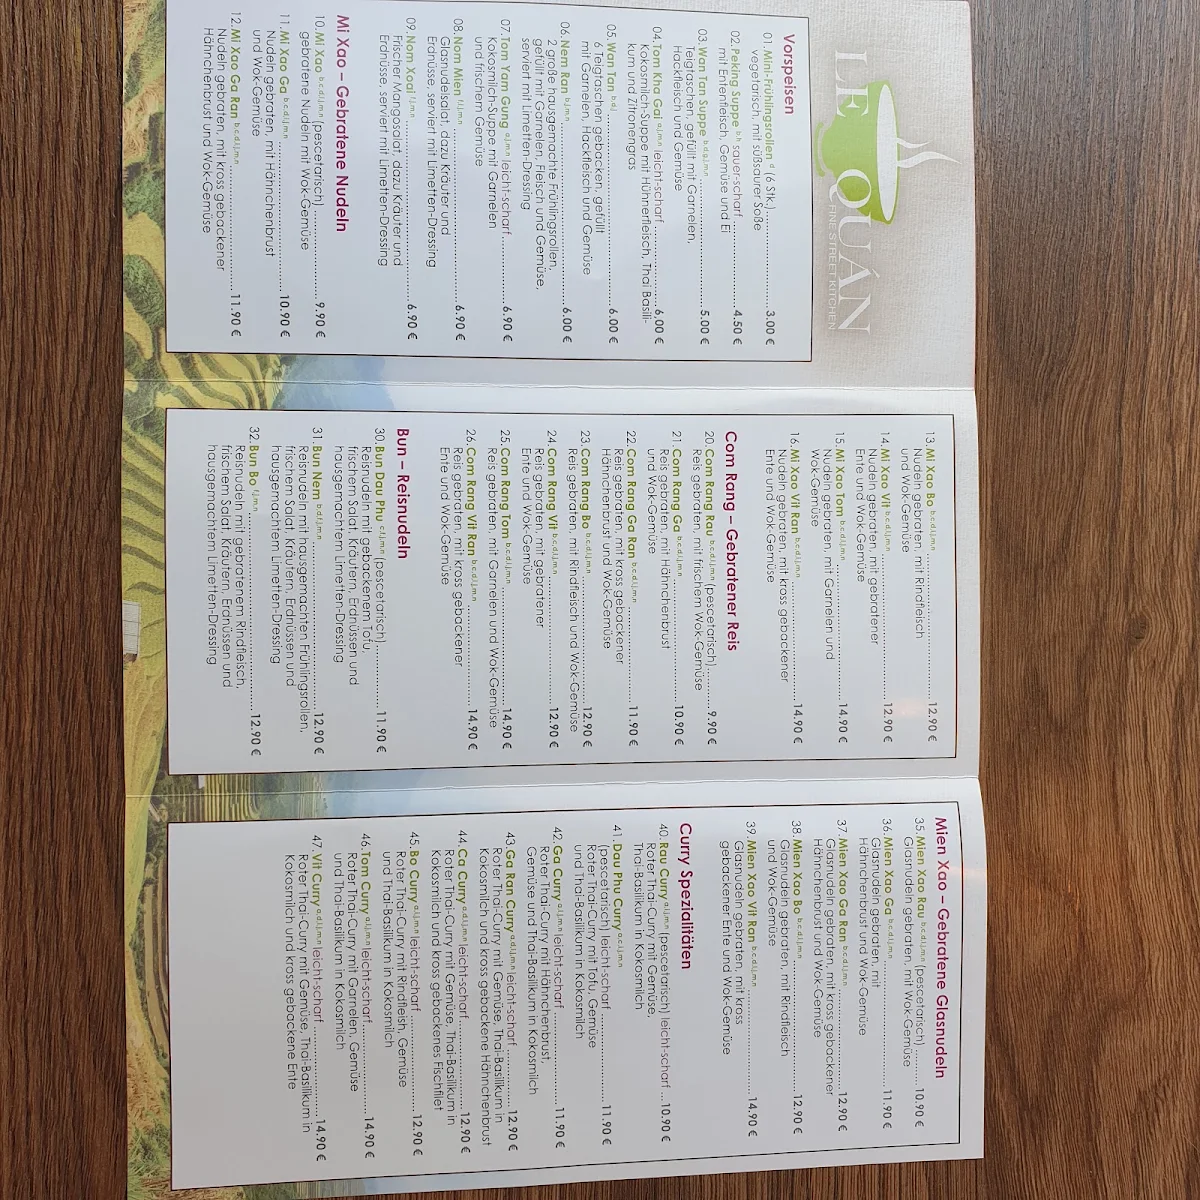 LE QUÁN
FINE STREET KITCHEN
Vorspeisen
01. Mini-Frühlingsrollen a (6 Stk.) 3.00 €
vegetarisch, mit süßsaurer Soße
02. Peking Suppe b,h sauer-scharf 4.50 €
mit Entenfleisch, Gemüse und Ei
03. Wan Tan Suppe 5.00 €
Teigtaschen, gefüllt mit Garnelen,
Hackfleisch und Gemüse
04. Tom Kha Gai leicht-scharf 6.00 €
Kokosmilch-Suppe mit Hühnerfleisch, Thai Basili-
kum und Zitronengras
05. Wan Tan b,d,j 6.00 €
6 Teigtaschen gebacken, gefüllt
mit Garnelen, Hackfleisch und Gemüse
06. Nem Ran b,j,m,n 6.00 €
2 große hausgemachte Frühlingsrollen,
gefüllt mit Garnelen, Fleisch und Gemüse,
serviert mit Limetten-Dressing
07. Tom Yam Gung leicht-scharf 6.90 €
Kokosmilch-Suppe mit Garnelen
und frischem Gemüse
08. Nom Mien f,l,j,m,n 6.90 €
Glasnudelsalat, dazu Kräuter und
Erdnüsse, serviert mit Limetten-Dressing
09. Nom Xoai f,l,j,m,n 6.90 €
Frischer Mangosalat, dazu Kräuter und
Erdnüsse, serviert mit Limetten-Dressing
Mi Xao – Gebratene Nudeln
10. Mi Xao b,c,d,l,j,m,n (pescetarisch) 9.90 €
gebratene Nudeln mit Wok-Gemüse
11. Mi Xao Ga b,c,d,l,j,m,n 10.90 €
Nudeln gebraten, mit Hähnchenbrust
und Wok-Gemüse
12. Mi Xao Ga Ran b,c,d,l,j,m,n 11.90 €
Nudeln gebraten, mit kross gebackener
Hähnchenbrust und Wok-Gemüse
13. Mi Xao Bo b,c,d,l,j,m,n 12.90 €
Nudeln gebraten, mit Rindfleisch
und Wok-Gemüse
14. Mi Xao Vit b,c,d,l,j,m,n 12.90 €
Nudeln gebraten, mit gebratener
Ente und Wok-Gemüse
15. Mi Xao Tom b,c,d,l,j,m,n 14.90 €
Nudeln gebraten, mit Garnelen und
Wok-Gemüse
16. Mi Xao Vit Ran b,c,d,l,j,m,n 14.90 €
Nudeln gebraten, mit kross gebackener
Ente und Wok-Gemüse
Com Rang – Gebratener Reis
20. Com Rang Rau b,c,d,l,j,m,n (pescetarisch) 9.90 €
Reis gebraten, mit frischem Wok-Gemüse
21. Com Rang Ga b,c,d,l,j,m,n 10.90 €
Reis gebraten, mit Hähnchenbrust
und Wok-Gemüse
22. Com Rang Ga Ran b,c,d,l,j,m,n 11.90 €
Reis gebraten, mit kross gebackener
Hähnchenbrust und Wok-Gemüse
23. Com Rang Bo b,c,d,l,j,m,n 12.90 €
Reis gebraten, mit Rindfleisch und Wok-Gemüse
24. Com Rang Vit b,c,d,l,j,m,n 12.90 €
Reis gebraten, mit gebratener
Ente und Wok-Gemüse
25. Com Rang Tom b,c,d,l,j,m,n 14.90 €
Reis gebraten, mit Garnelen und Wok-Gemüse
26. Com Rang Vit Ran b,c,d,l,j,m,n 14.90 €
Reis gebraten, mit kross gebackener
Ente und Wok-Gemüse
Bun – Reisnudeln
30. Bun Dau Phu c,f,l,j,m,n (pescetarisch) 11.90 €
Reisnudeln mit gebackenem Tofu,
frischem Salat, Kräutern, Erdnüssen und
hausgemachtem Limetten-Dressing
31. Bun Nem b,d,f,l,j,m,n 12.90 €
Reisnudeln mit hausgemachten Frühlingsrollen,
frischem Salat, Kräutern, Erdnüssen und
hausgemachtem Limetten-Dressing
32. Bun Bo f,l,j,m,n 12.90 €
Reisnudeln mit gebratenem Rindfleisch,
frischem Salat, Kräutern, Erdnüssen und
hausgemachtem Limetten-Dressing
Mien Xao – Gebratene Glasnudeln
35. Mien Xao Rau b,c,d,l,j,m,n (pescetarisch) 10.90 €
Glasnudeln gebraten, mit Wok-Gemüse
36. Mien Xao Ga b,c,d,l,j,m,n 11.90 €
Glasnudeln gebraten, mit
Hähnchenbrust und Wok-Gemüse
37. Mien Xao Ga Ran b,c,d,l,j,m,n 12.90 €
Glasnudeln gebraten, mit kross gebackener
Hähnchenbrust und Wok-Gemüse
38. Mien Xao Bo b,c,d,l,j,m,n 12.90 €
Glasnudeln gebraten, mit Rindfleisch
und Wok-Gemüse
39. Mien Xao Vit Ran b,c,d,l,j,m,n 14.90 €
Glasnudeln gebraten, mit kross
gebackener Ente und Wok-Gemüse
Curry Spezialitäten
40. Rau Curry a,l,j,m,n (pescetarisch) leicht-scharf 10.90 €
Roter Thai-Curry mit Gemüse,
Thai-Basilikum in Kokosmilch
41. Dau Phu Curry a,c,l,j,m,n
(pescetarisch) leicht-scharf 11.90 €
Roter Thai-Curry mit Tofu, Gemüse
und Thai-Basilikum in Kokosmilch
42. Ga Curry a,l,j,m,n leicht-scharf 11.90 €
Roter Thai-Curry mit Hähnchenbrust,
Gemüse und Thai-Basilikum in Kokosmilch
43. Ga Ran Curry a,d,l,j,m,n leicht-scharf 12.90 €
Roter Thai-Curry mit Gemüse, Thai-Basilikum in
Kokosmilch und kross gebackene Hähnchenbrust
44. Ca Curry a,d,l,j,m,n leicht-scharf 12.90 €
Roter Thai-Curry mit Gemüse, Thai-Basilikum in
Kokosmilch und kross gebackenes Fischfilet
45. Bo Curry a,l,j,m,n leicht-scharf 12.90 €
Roter Thai-Curry mit Rindfleish, Gemüse
und Thai-Basilikum in Kokosmilch
46. Tom Curry a,l,j,m,n leicht-scharf 14.90 €
Roter Thai-Curry mit Garnelen, Gemüse
und Thai-Basilikum in Kokosmilch
47. Vit Curry a,d,l,j,m,n leicht-scharf 14.90 €
Roter Thai-Curry mit Gemüse, Thai-Basilikum in
Kokosmilch und kross gebackene Ente